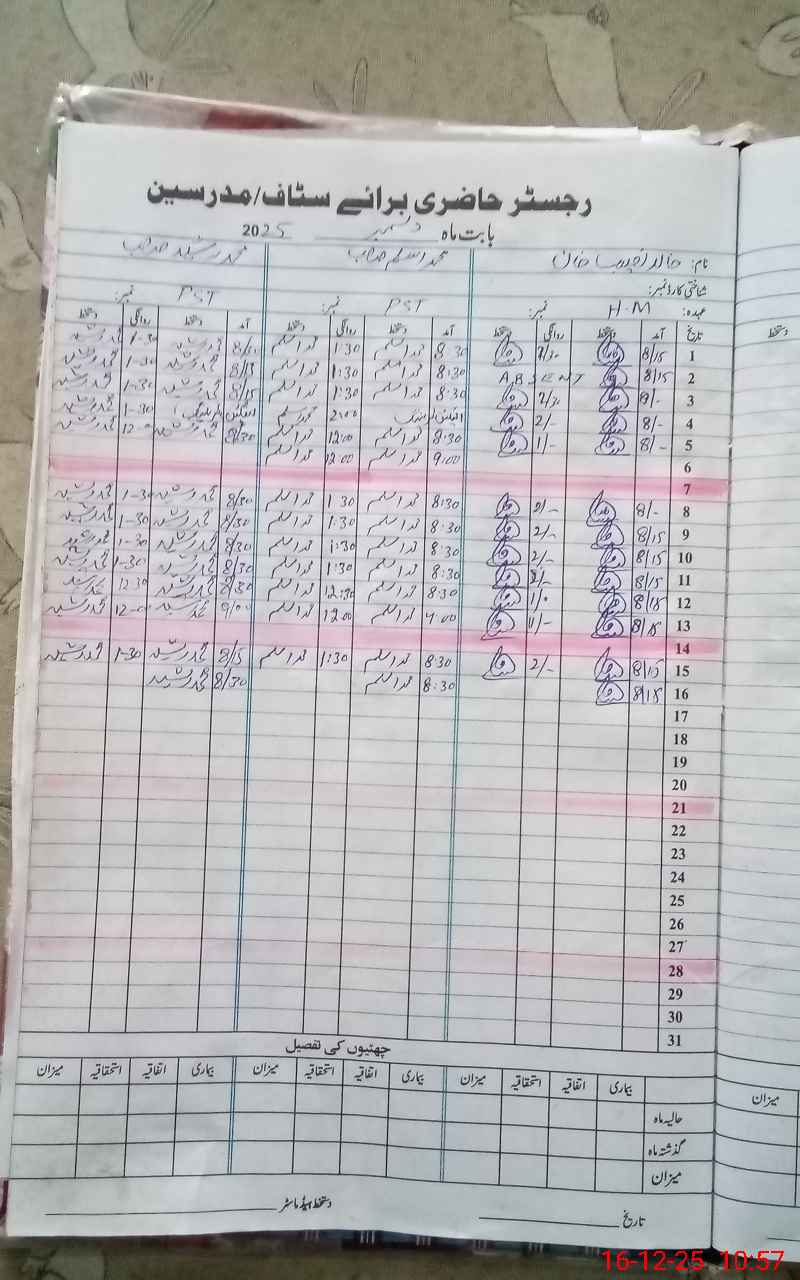 رجسٹر حاضری برائے سٹاف/مدرسین
بابت ماہ دسمبر 2025
نام: خالد محمد اسلم صاحب محمد رشید صاحب
شناختی کارڈ نمبر:
عہدہ: H.M نمبر: PST نمبر: PST نمبر:
تاریخ آمد دستخط روانگی دستخط آمد دستخط روانگی دستخط آمد دستخط روانگی دستخط
1 8/15 8:30 محمد اسلم 1:30 محمد اسلم محمد رشید 1-30 محمد رشید
2 8/15 ABSENT 8:30 محمد اسلم 1:30 محمد اسلم 8/15 محمد رشید 1-30 محمد رشید
3 8/- 8:30 محمد اسلم 1:30 محمد اسلم 8/15 محمد رشید 1-30 محمد رشید
4 8/- 2/- 2:00 1-30 محمد رشید
5 8/- 1/- 8:30 محمد اسلم 12:00 محمد اسلم 8/30 محمد رشید محمد رشید
6 9:00 محمد اسلم 12:00 محمد اسلم
7
8 8/- 2/- 8:30 محمد اسلم 1:30 محمد اسلم 8/30 محمد رشید 1-30 محمد رشید
9 8/15 2/- 8:30 محمد اسلم 1:30 محمد اسلم 8/30 محمد رشید 1-30 محمد رشید
10 8/15 2/- 8:30 محمد اسلم 1:30 محمد اسلم 8/30 محمد رشید 1-30 محمد رشید
11 8/15 2/- 8:30 محمد اسلم 1:30 محمد اسلم 8/30 محمد رشید 1-30 محمد رشید
12 8/15 8:30 محمد اسلم 12:30 محمد اسلم 8/30 محمد رشید 12-30 محمد رشید
13 8/15 محمد اسلم 12:00 محمد اسلم 9/00 محمد رشید محمد رشید
14
15 8/15 2/- 8:30 محمد اسلم 1:30 محمد اسلم محمد رشید 1-30 محمد رشید
16 8/15 8:30 محمد اسلم 8/30 محمد رشید
17
18
19
20
21
22
23
24
25
26
27
28
29
30
31
چھٹیوں کی تفصیل
بیماری اتفاقیہ استحقاقیہ میزان بیماری اتفاقیہ استحقاقیہ میزان بیماری اتفاقیہ استحقاقیہ میزان
حالیہ ماہ
گذشتہ ماہ
میزان
تاریخ دستخط ہیڈ ماسٹر
دستخط
میزان
16-12-25 10:57